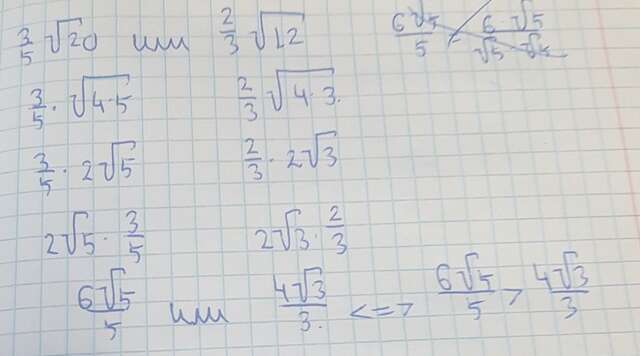 3/5 √20 или 2/3 √12
6√5/5 = 6·√5/√5 √5
3/5 · √4·5 2/3 √4·3.
3/5 · 2√5 2/3 · 2√3
2√5 · 3/5 2√3 · 2/3
6√5/5 или 4√3/3. <=> 6√5/5 > 4√3/3